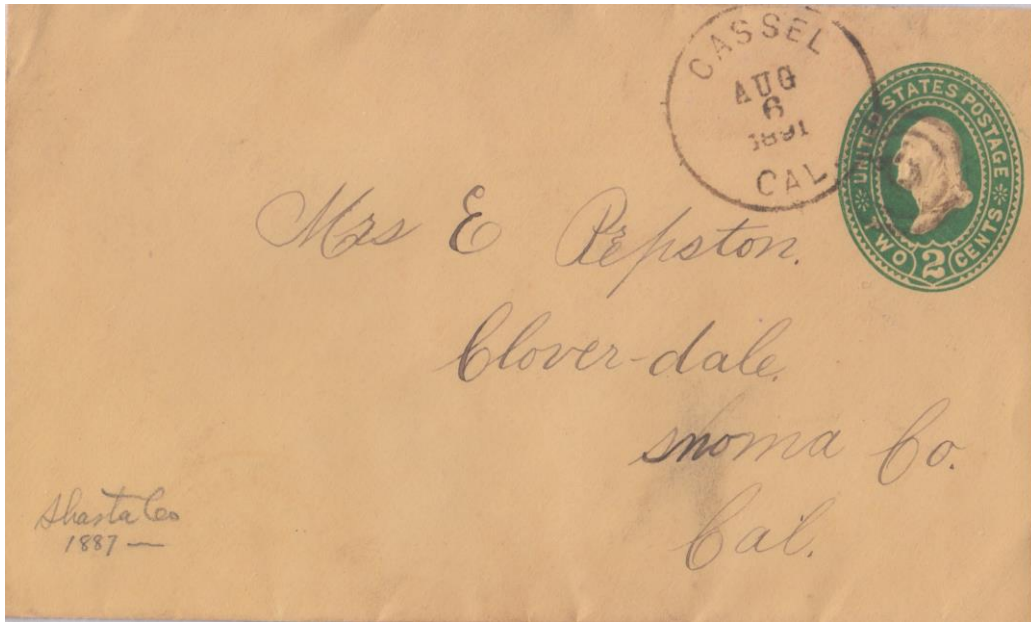 CASSEL
AUG
6
1891
CAL
UNITED STATES POSTAGE
TWO 2 CENTS
Mrs E Pepston.
Clover-dale.
snoma Co.
Cal.
Shasta Co
1887 —